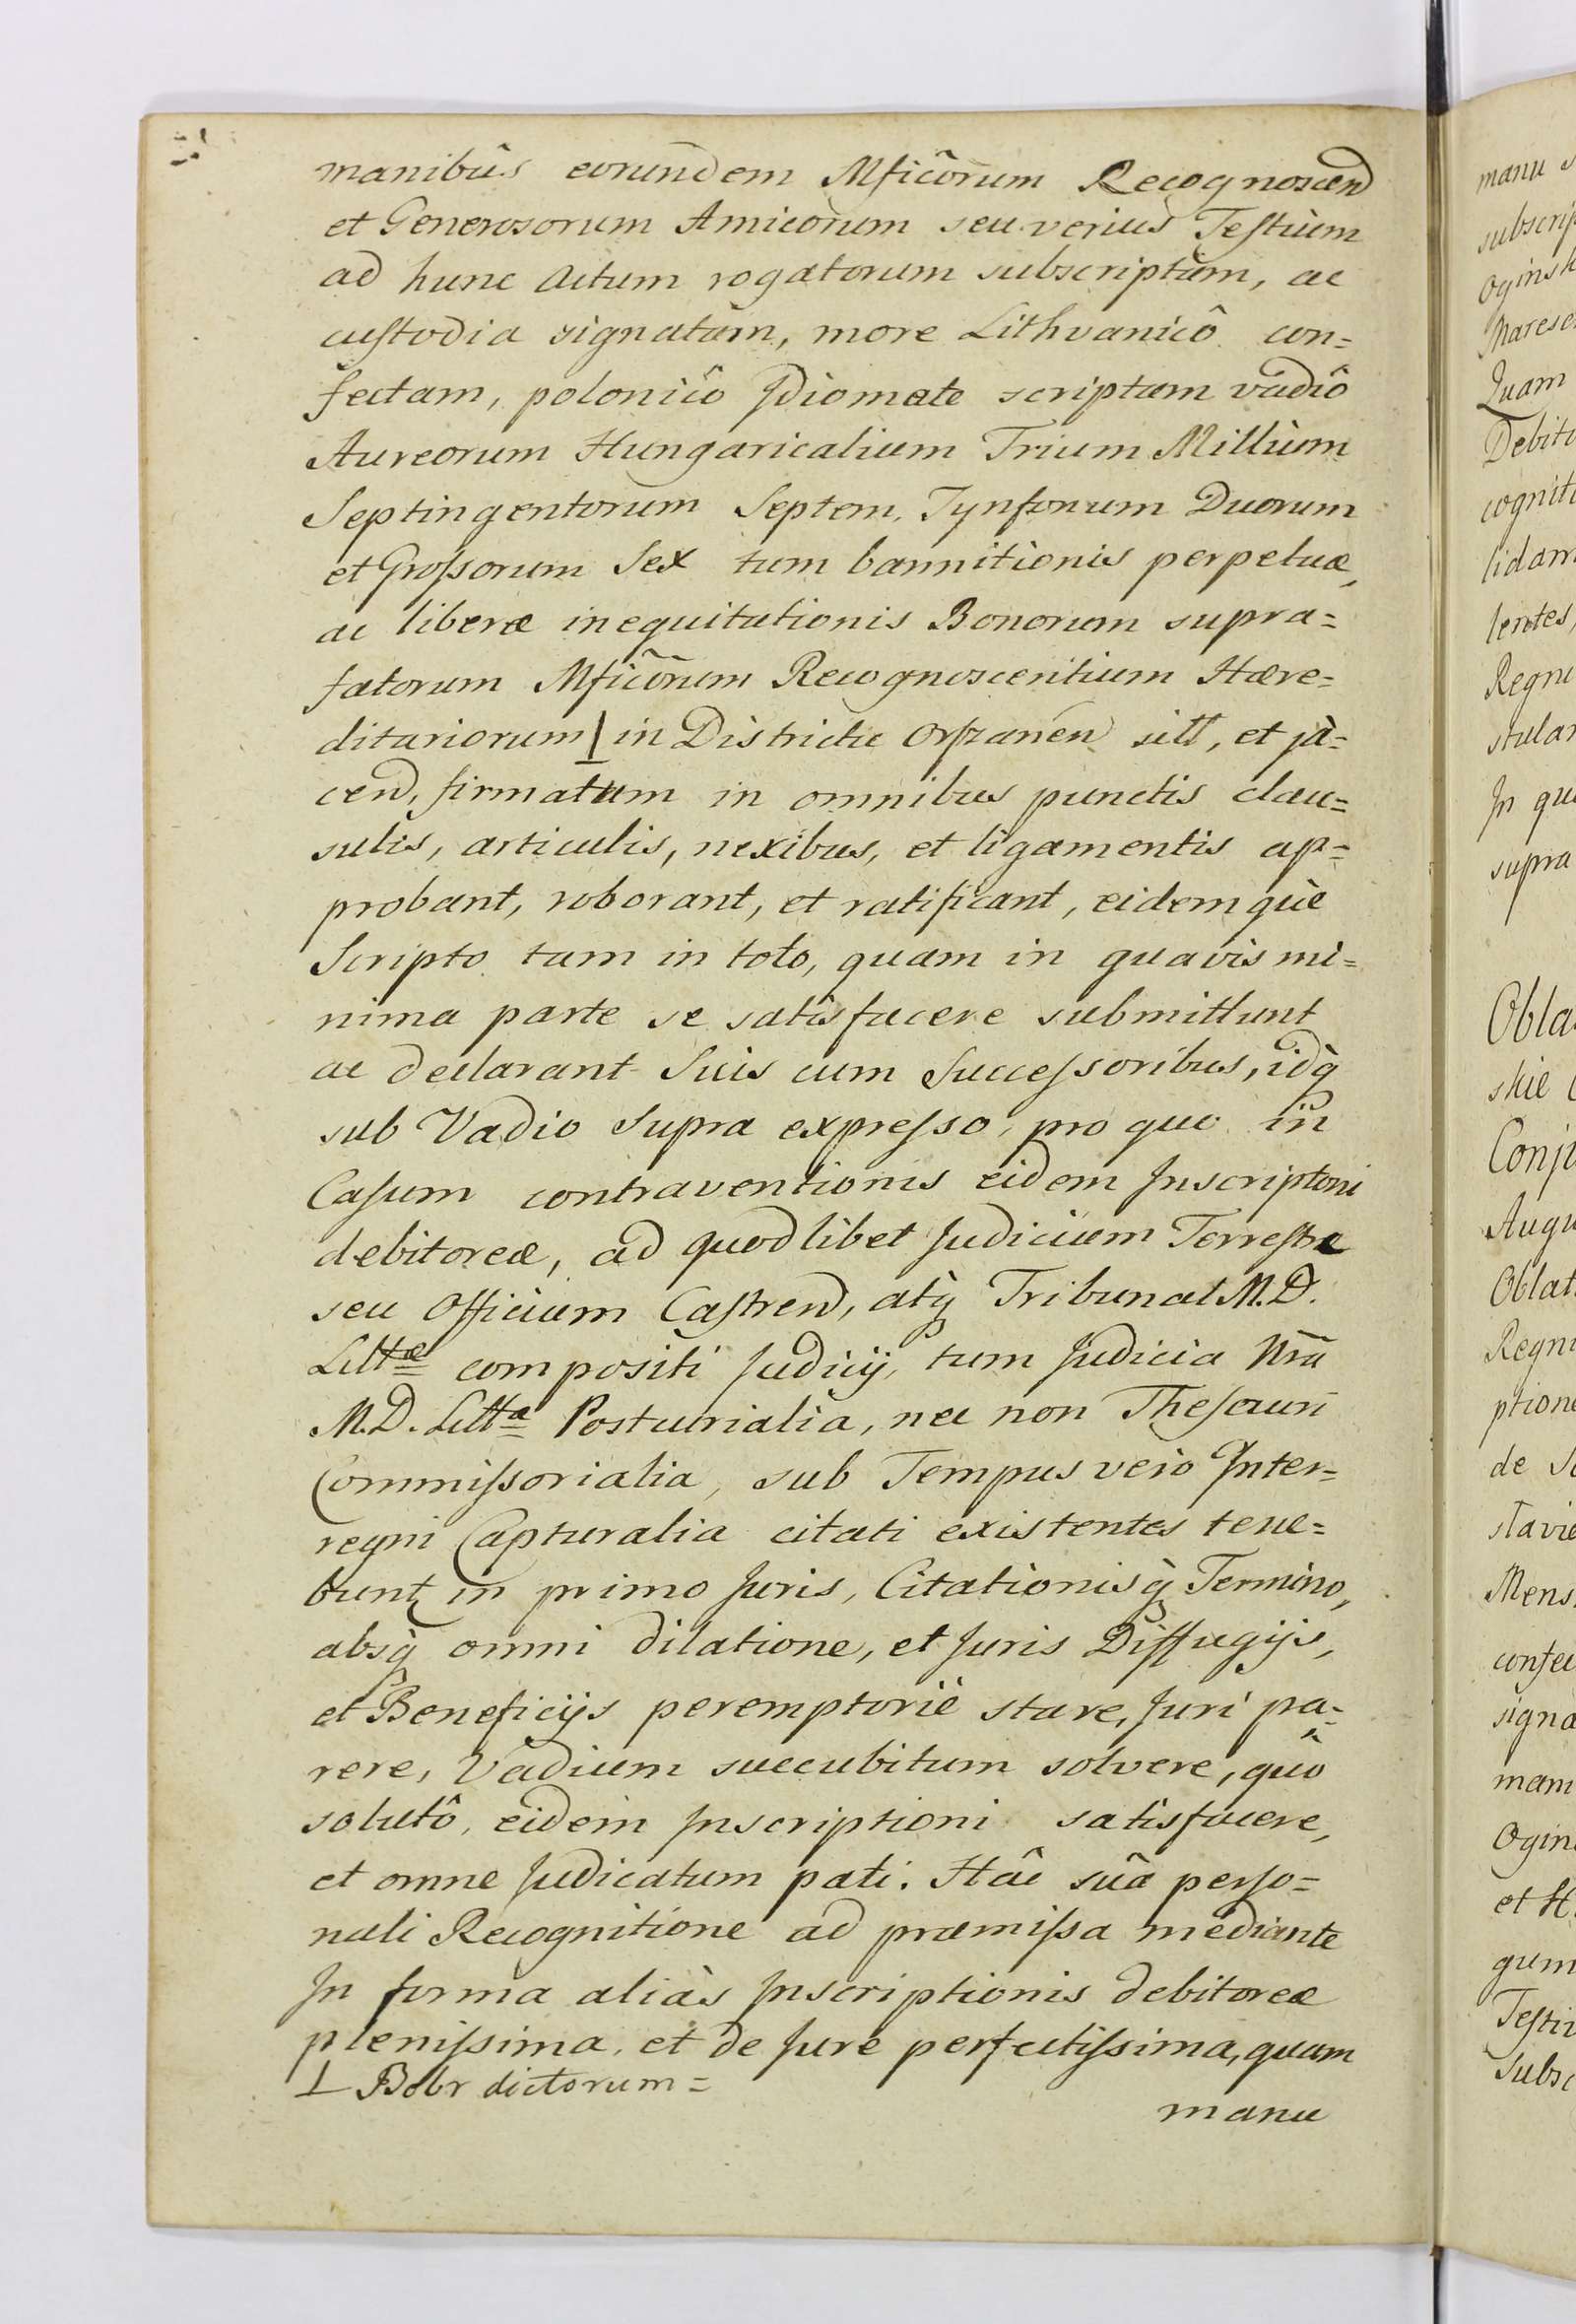 manibûs eorundem Mficôrum Recognoscend
et Generosorum Amicorum seu verius Testium
ad hunc Actum rogatorum subscriptam, ac
custodia signatam, more Lithvanicô con=
fectam, polonicô Jdiomate scriptam vadiô
Aureorum Hungaricalium Trium Millium
Septingentorum Septem, Tynfonum Duorum
et Grossorum Sex tum bannitionis perpetuæ,
ac liberæ inequitationis Bonorum supra=
fatorum Mficõrum Recognoscentium Hære=
ditariorum ⊥ in Districtu Orszanen sitt, et jà=
cend, firmatam in omnibus punctis clau=
sulis, articulis, nexibus, et ligamentis ap=
probant, roborant, et ratificant, eidemquè
Scripto tam in toto, quam in quavis mi=
nima parte se satisfacere submittunt
ac declarant Suis cum Successoribus, idq̀
sub Vadio Supra expresso, pro quo in
Casum contraventionis eidem Jnscriptoni
debitoreæ, ad quodlibet Judicium Terrestre
seu Officium Castrend, atq̀ Tribunal M. D.
Littæ compositi Judicij, tum Judicia Nrã
M. D. Litta Postcurialia, nec non Thesauri
Commissorialia, sub Tempus verò Jnter=
regni Capturalia citati existentes tene=
bunt in primo Juris, Citationisq̀ Termino,
absq̀ omni dilatione, et Juris Diffugijs,
et Beneficijs peremptoriè stare, Juri pa=
rere, Vadium succubitum solvere, quô
solutô, eidem Jnscriptioni satisfacere,
et omne Judicatum pati. Hâc suâ perso=
nali Recognitione ad præmissa mediante
Jn forma aliàs Jnscriptionis debitoreæ
plenissima, et de Jure perfectissima, quam
⊥ Bobr dictorum =
manu
manu
subscrip
Oginsk
Maresc
Quam
Debito
cogniti
lidam
lentes,
Regni
stular
Jn qu
supra
Obla
skie
Conju
Augu
Oblat
Regni
ptione
de
slavie
Mens
confec
signa
mani
Ogin
et H
gum
Testi
Subsc